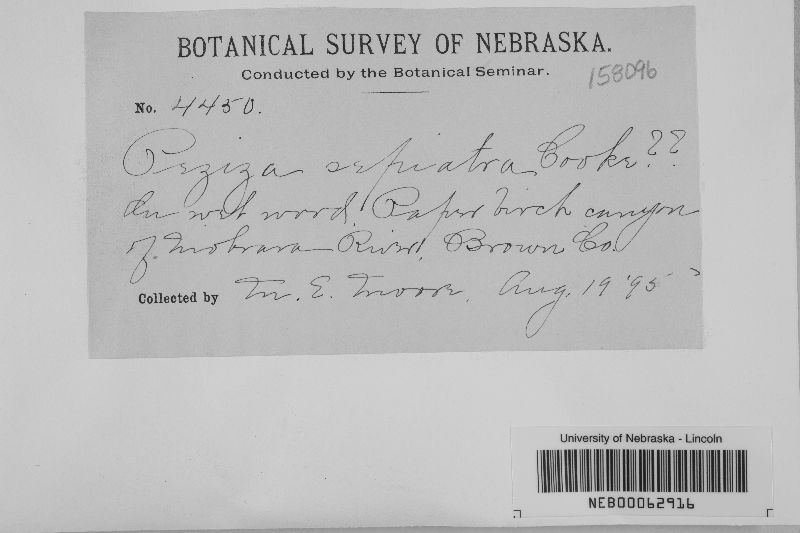 BOTANICAL SURVEY OF NEBRASKA.
Conducted by the Botanical Seminar.
158096
No. 4450.
Peziza sepiatra Cooke??
On wet wood, Paper birch canyon
of Niobrara River, Brown Co.
Collected by M. E. Moore, Aug. 19 '95
University of Nebraska - Lincoln
NEB00062916